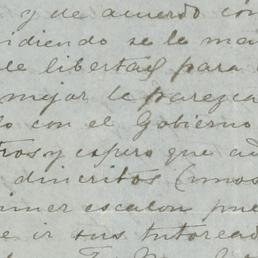 y de acuerdo con
idiendo se le ma
de libertad para
mejar le parezca
lo con el Gobierno
tros y espero que ad
discritos (amos
imer escalon pue
e ir sus tutoread